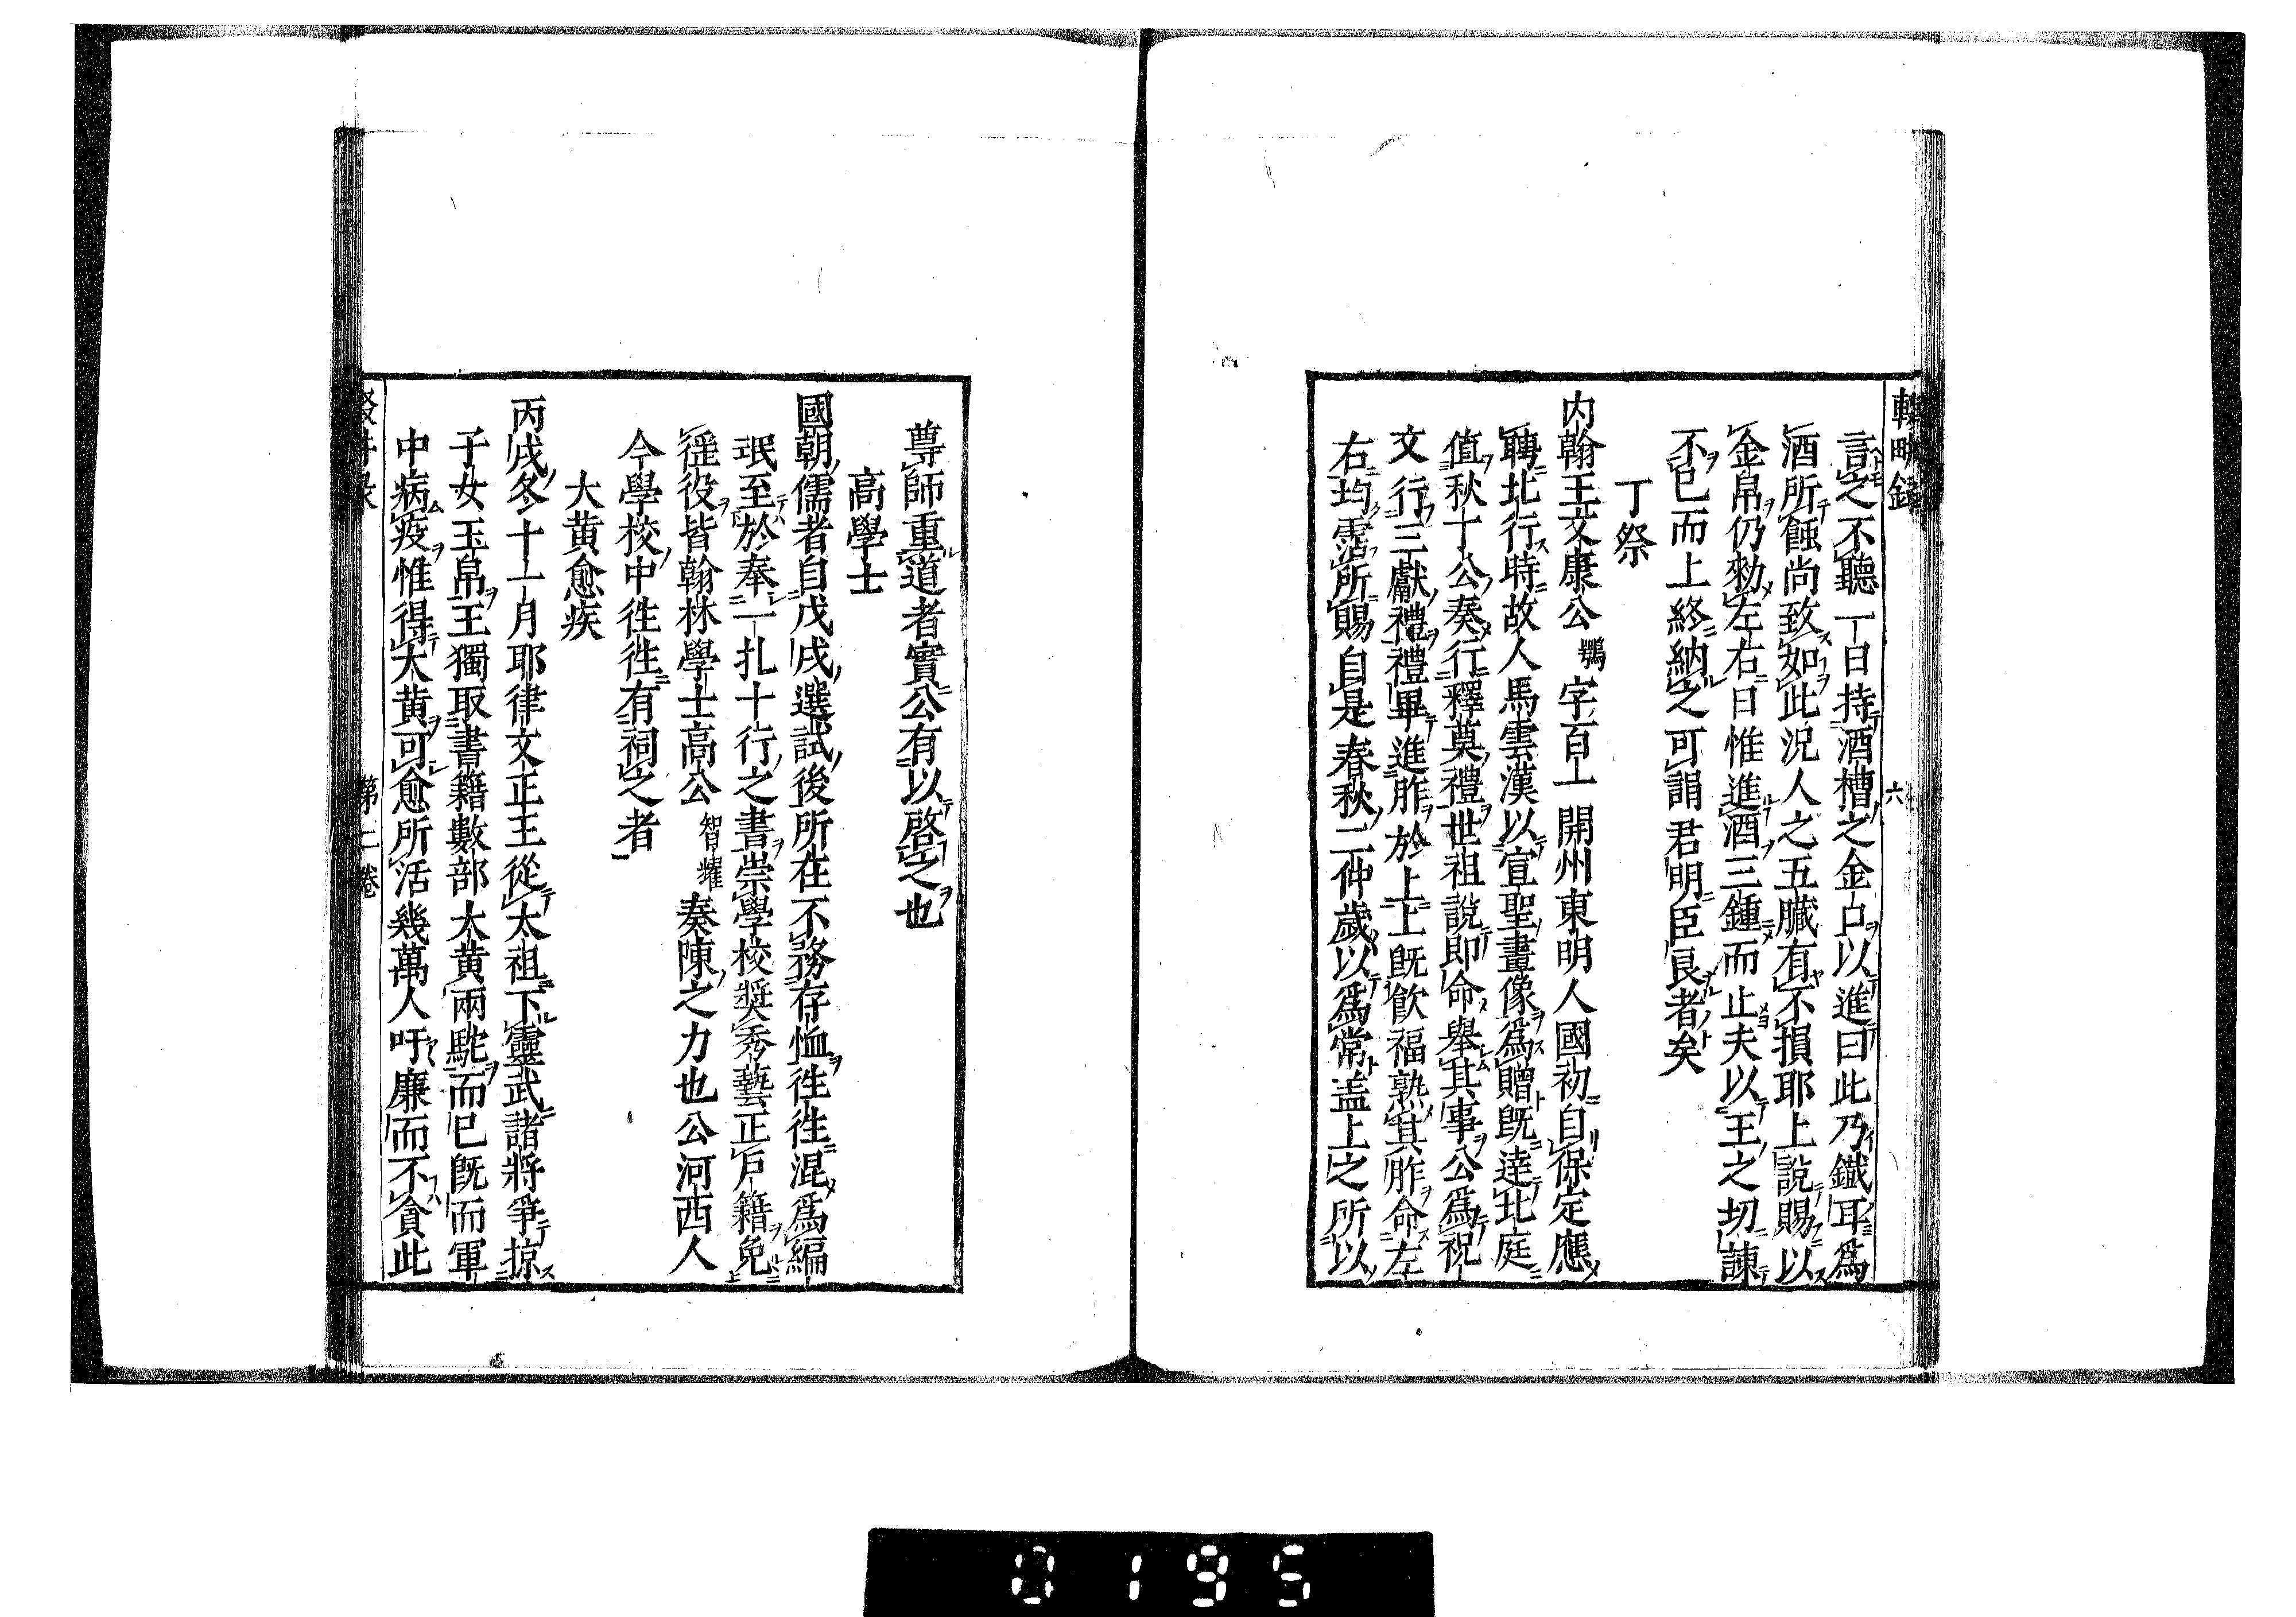 輟畊錄 六
言之不聽一日持酒槽之金口以進曰此乃鐵耳爲
酒所蝕尚致如此況人之五臟有不損耶上說賜以
金帛仍勑左右曰惟進酒三鍾而止夫以王之切諫
不已而上終納之可謂君明臣良者矣
丁祭
内翰王文康公鶚字百一開州東明人國初自保定應
聘北行時故人馬雲漢以宣聖畫像爲贈旣達北庭
值秋丁公奏行釋奠禮世祖說即命舉其事公爲祝
文行三獻禮禮畢進胙於上上旣飲福熟其胙命左
右均霑所賜自是春秋二仲歲以爲常盖上之所以
尊師重道者實公有以啓之也
高學士
國朝儒者自戊戌選試後所在不務存恤徃徃混爲編
珉至於奉一扎十行之書崇學校奬秀藝正戶籍免
徭役皆翰林學士高公智耀奏陳之力也公河西人
今學校中徃徃有祠之者
大黄愈疾
丙戌冬十一月耶律文正王從太祖下靈武諸將爭掠
子女玉帛王獨取書籍數部大黄兩駝而已旣而軍
中病疫惟得大黄可愈所活幾萬人吁廉而不貪此
第二卷
0195